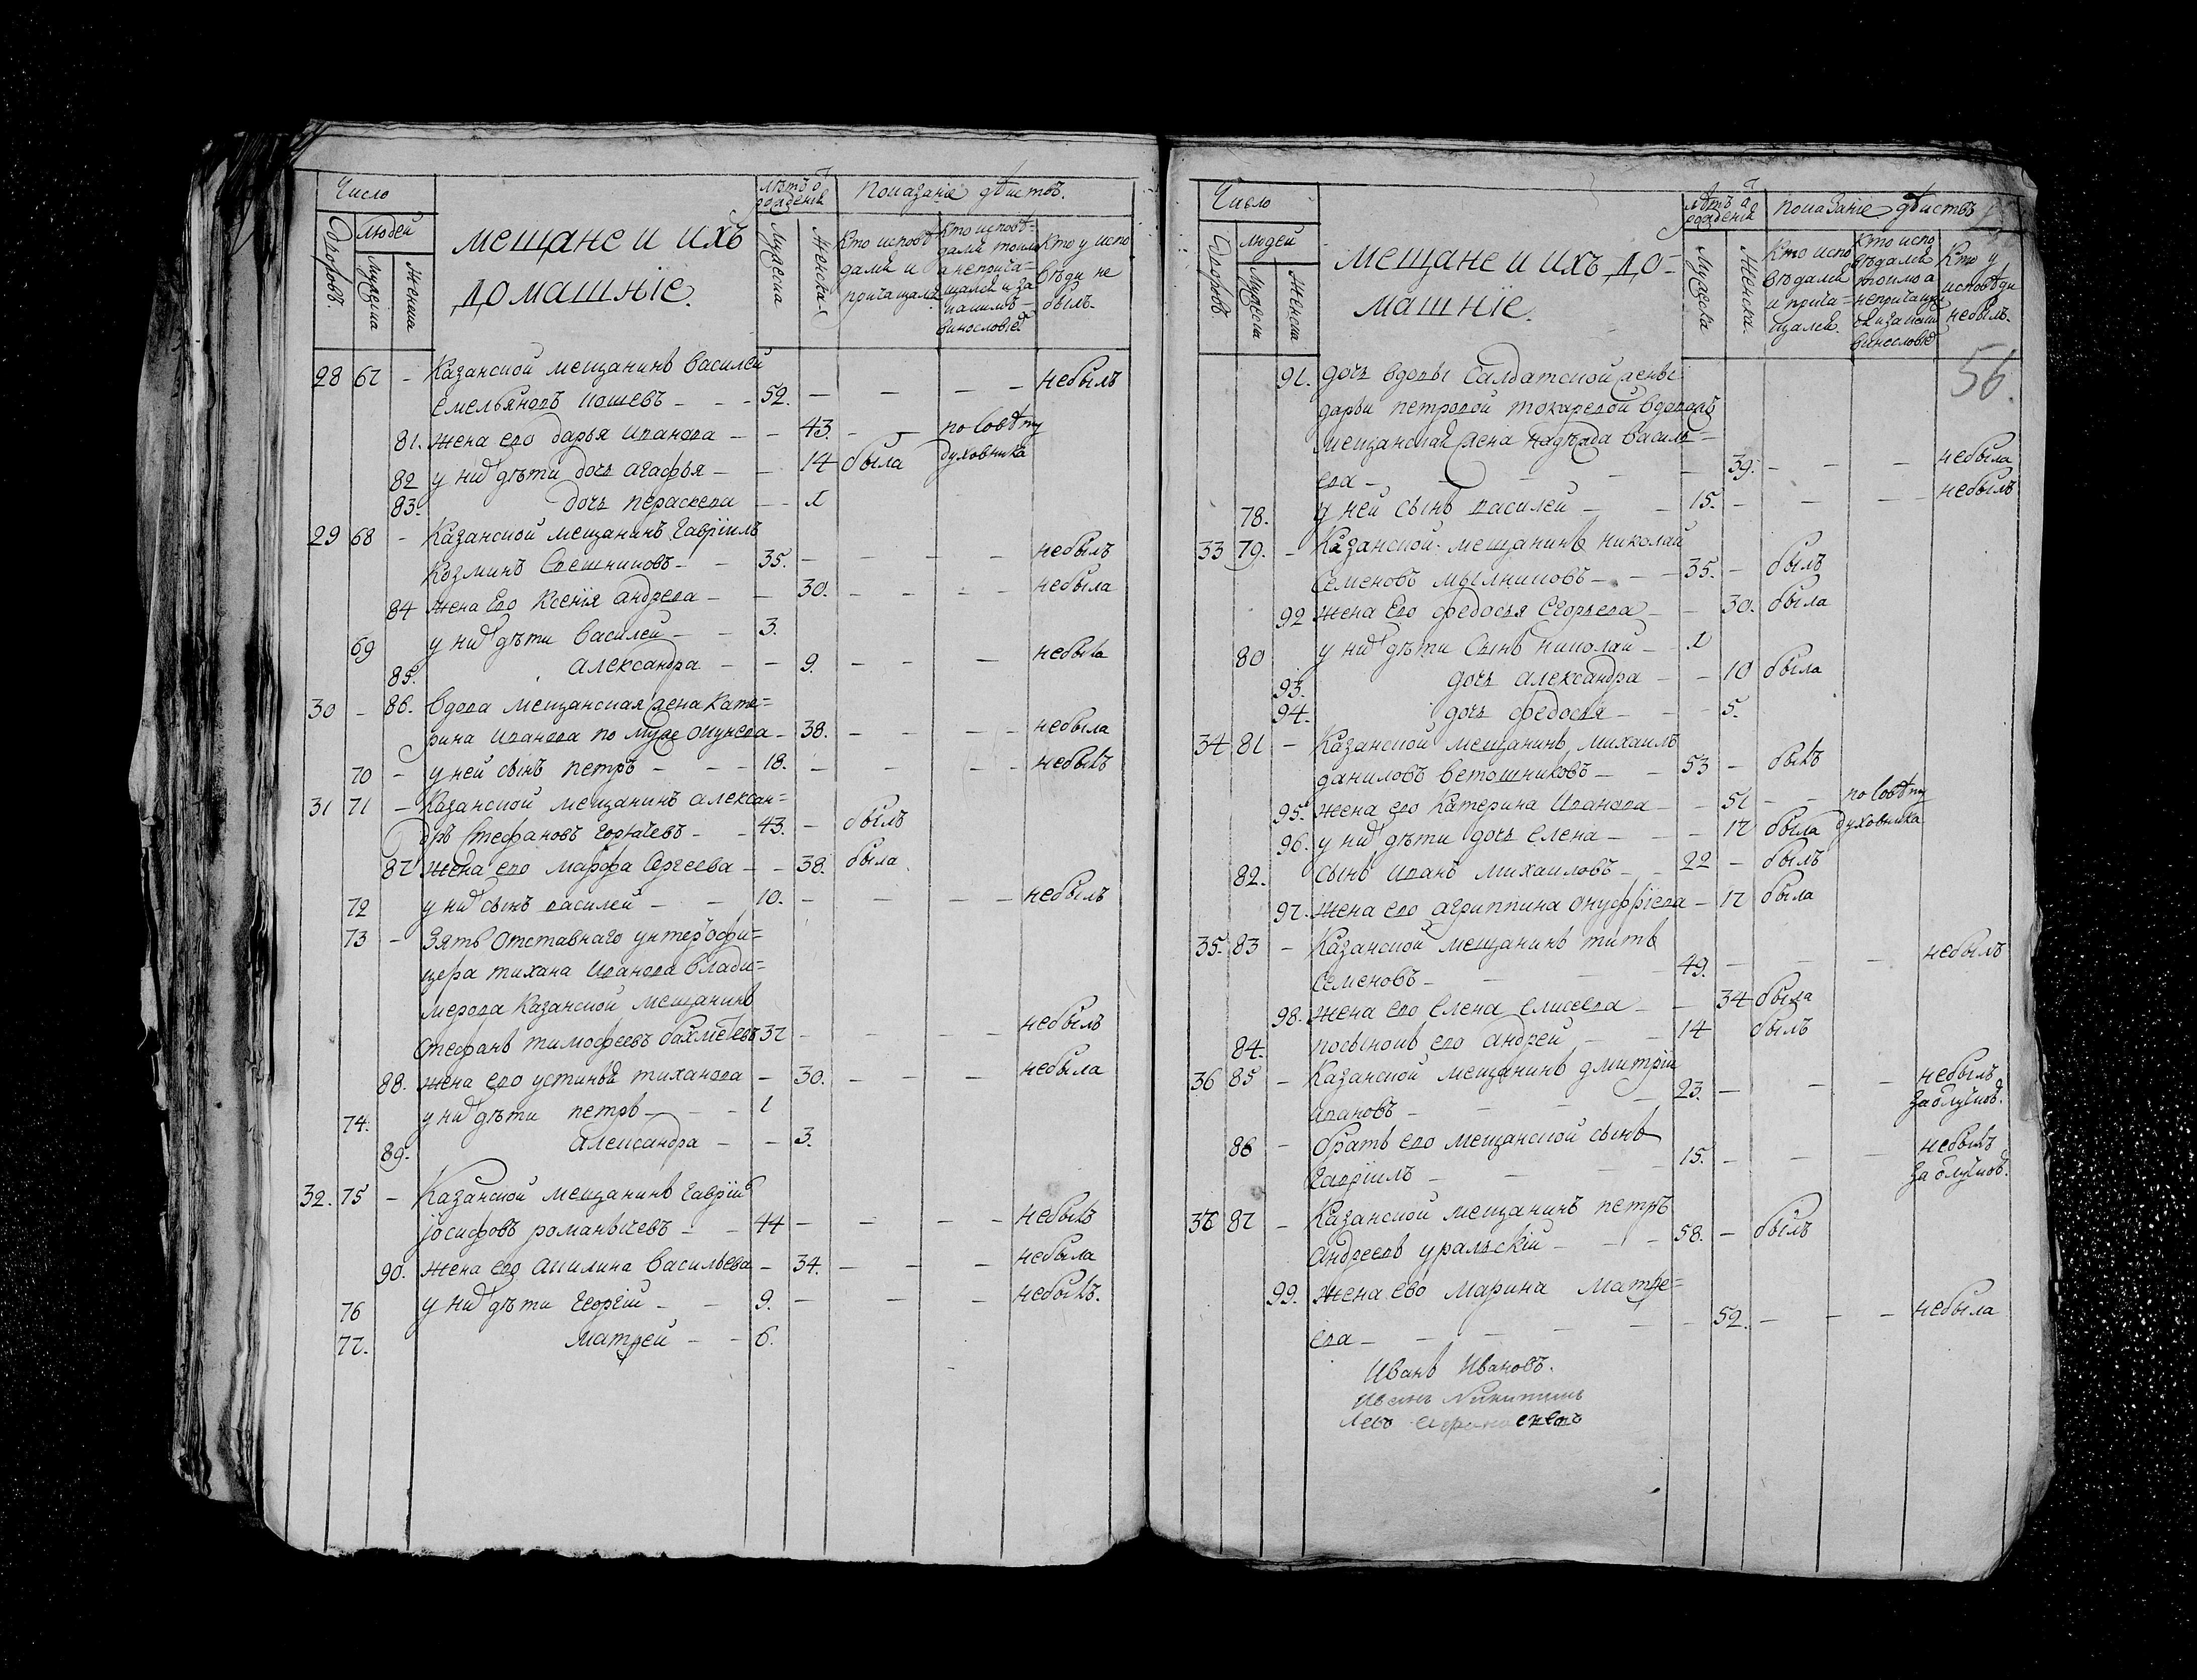 Число
лѣтъ от рожденія
Показаніе дѣйствъ.
Дворовъ.
Людей
Мужеска
Женска
мещане и ихъ
домашніе.
Мужеска
Женска
Кто исповѣдались и причащались
Кто исповѣдались токмо а не причащались и за какимъ винословіе
Кто у исповѣди не былъ.
28 67 - Казанской мещанинъ василей
емельяновъ кошевъ - - - 52. - - - - небылъ
81. жена ево дарья иванова - - 43. - - по совѣту
82 у них дѣти дочь агафья - - 14 была духовника
83. дочь параскева - - 1
29 68 - Казанской мещанинъ Гавріилъ
козминъ Свешниковъ - - 35. - - - - небылъ
84 жена Ево Ксенія андреева - - 30. - - - - небыла
69 у них дѣти василей - - 3.
85. александра - - 9. - - - небыла
30 - 86. вдова мещанская жена кате=
рина иванова по муже окунева - 38. - - - - небыла
70 - у ней сынъ петръ - - - 18. - - - - небылъ
31 71 - Казанской мещанинъ алексан=
дръ Стефановъ горячевъ - - 43. - былъ
87 жена ево марфа Сергеева - - 38. была
72 у них сынъ василей - - 10. - - - - небылъ
73 - Зять отставнаго унтеръ офи=
цера тихана иванова влади=
мерова казанской мещанинъ
Стефанъ тимофеевъ бахметевъ 37 - - - - небылъ
88. жена ево устинья тиханова - 30. - - - небыла
74. у них дѣти петръ - - - 1
89. александра - - 3.
32. 75 - Казанской мещанинъ гавріил
іосифовъ романычевъ - - 44 - - - - небылъ
90. жена ево акилина васильева - 34. - - - небыла
76 у них дѣти георгій - - 9. - - - небылъ.
77. матфей - - 6.
Число
лѣтъ от рожденія
показаніе дѣйствъ
Дворовъ
людей
Мужеска
Женска
мещане и ихъ до=
машніе.
Мужеска
Женска.
Кто исповѣдались и причащались.
Кто исповѣдались токмо а непричащались и за какимъ винословіе
Кто у исповѣди небылъ.
56.
91. дочь вдовы Салдатской жены
дарьи петровой токаревой вдовая
мещанская жена надѣжда василь=
ева - - - - 39. - - - небыла
78. у ней сынъ василей - - 15. - - - - небылъ
33 79. - Казанской мещанинъ николай
Семеновъ мылниковъ - - - 35. - былъ
92 жена Ево федосья Егорьева - - 30. была
80 у них дѣти Сынъ николай - - 1
93. дочь александра - - 10 была
94. дочь федосья - - 5.
34 81 - Казанской мещанинъ михаилъ
даниловъ ветошниковъ - - 53 - былъ
95. жена ево катерина иванова - - 51 - - по совѣту
96. у них дѣти дочь елена - - - 17 была духовника
82. сынъ иванъ михаиловъ - - 22 - былъ
97. жена ево агриппина онуфріева - 17 была
35. 83 - Казанской мещанинъ титъ
Семеновъ - - - - 49. - - - небылъ
98. жена ево елена елисеева - - 34 была
84. посынокъ ево андрей - - 14 былъ
36 85 - Казанской мещанинъ дмитрій
ивановъ - - - - 23. - - - небылъ
за отлучков.
86 - братъ ево мещанской сынъ
гавріилъ - - - - 15. - - - небылъ
за отлучков.
37 87 - Казанской мещанинъ петръ
андреевъ уральскій - - - 58. - былъ
99. жена ево марина матфе=
ева - - - - - - 52. - - - небыла
Иванъ Ивановъ.
Иванъ Никитинъ